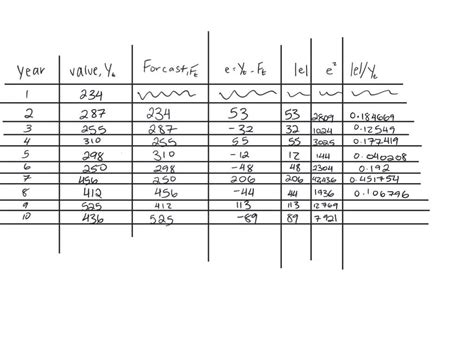 year value, Yt Forcast, Ft e = Yt - Ft |e| e² |e|/Yt
1 234
2 287 234 53 53 2809 0.184669
3 255 287 -32 32 1024 0.12549
4 310 255 55 55 3025 0.177419
5 298 310 -12 12 144 0.040268
6 250 298 -48 48 2304 0.192
7 456 250 206 206 42436 0.451754
8 412 456 -44 44 1936 0.106796
9 525 412 113 113 12769
10 436 525 -89 89 7921